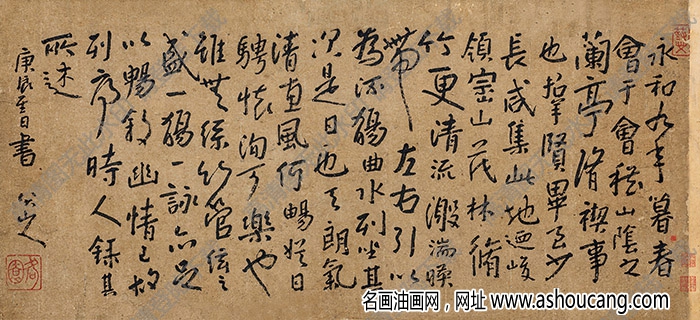 永和九年暮春
會于會稽山陰之
蘭亭脩禊事
也羣賢畢至少
長咸集此地迺峻
領崇山茂林脩
竹更清流激湍暎
帶左右引以
為流觴曲水列坐其
次是日也天朗氣
清惠風和暢娛日
騁懷洵可樂也
雖無絲竹管弦之
盛一觴一詠亦足
以暢敘幽情已故
列序時人錄其
所述
庚辰至日書
八大山人
名画油画网，网址 www.ashoucang.com